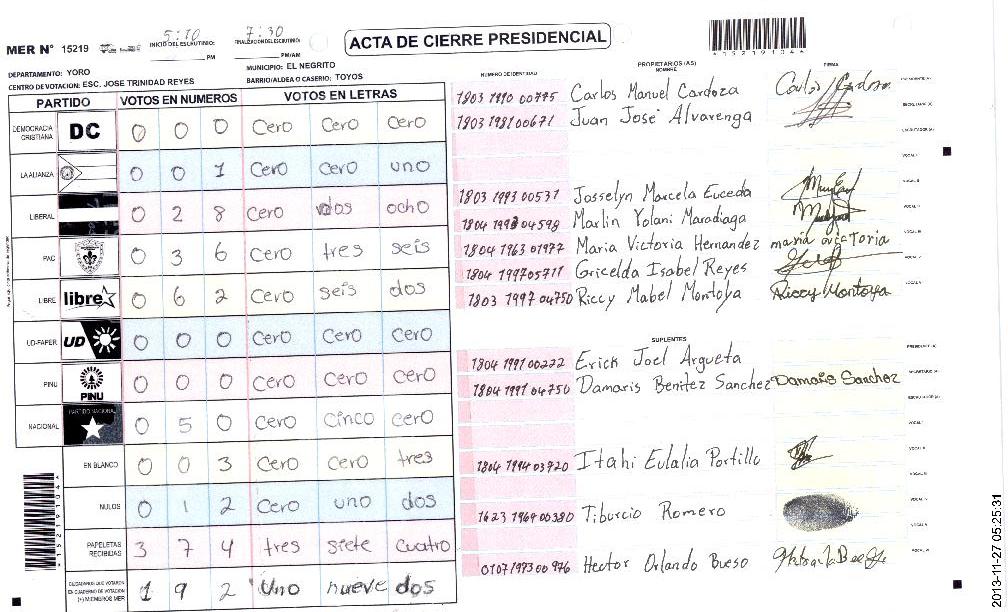 5:10 7:30
MER N° 15219 INICIO DEL ESCRUTINIO: PM FINALIZACION DEL ESCRUTINIO: PM/AM
ACTA DE CIERRE PRESIDENCIAL
DEPARTAMENTO: YORO MUNICIPIO: EL NEGRITO
CENTRO DE VOTACION: ESC. JOSE TRINIDAD REYES BARRIO/ALDEA O CASERIO: TOYOS
PARTIDO VOTOS EN NUMEROS VOTOS EN LETRAS
DEMOCRACIA CRISTIANA DC 0 0 0 Cero Cero Cero
LA ALIANZA 0 0 1 Cero Cero uno
LIBERAL 0 2 8 Cero dos ocho
PAC 0 3 6 Cero tres seis
LIBRE libre 0 6 2 Cero seis dos
UD-FAPER UD 0 0 0 Cero Cero Cero
PINU PINU 0 0 0 Cero Cero Cero
NACIONAL PARTIDO NACIONAL 0 5 0 Cero Cinco Cero
EN BLANCO 0 0 3 Cero Cero tres
NULOS 0 1 2 Cero uno dos
PAPELETAS RECIBIDAS 3 7 4 tres siete cuatro
CIUDADANOS QUE VOTARON EN CUADERNO DE VOTACION (+) MIEMBROS MER 1 9 2 Uno nueve dos
NUMERO DE IDENTIDAD PROPIETARIOS (AS) NOMBRE FIRMA
1803 1990 00775 Carlos Manuel Cardoza Carlos Cardoza
1803 1981 00671 Juan José Alvarenga
1803 1993 00531 Josselyn Marcela Euceda
1804 1993 04598 Marlin Yolani Maradiaga
1804 1963 01977 Maria Victoria Hernandez maria victoria
1804 1997 05711 Gricelda Isabel Reyes
1803 1997 04750 Riccy Mabel Montoya Riccy Montoya
SUPLENTES
1804 1991 00222 Erick Joel Argueta
1804 1991 04750 Damaris Benitez Sanchez Damaris Sanchez
1804 1994 03720 Itahi Eulalia Portillo
1623 1964 00380 Tiburcio Romero
0107 1993 00976 Hector Orlando Bueso
2013-11-27 05:25:31